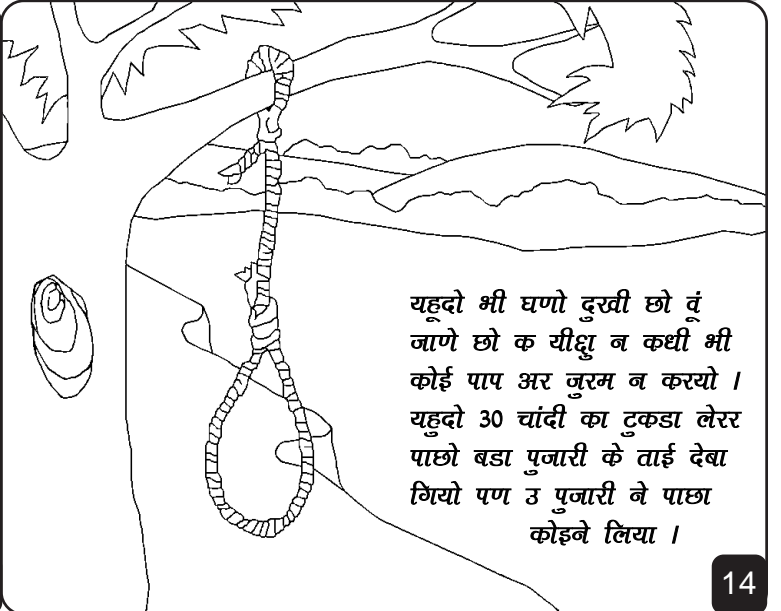 यहूदो भी घणो दुखी छो वूं
जाणे छो क यीशु न कधी भी
कोई पाप अर जुरम न करयो ।
यहुदो 30 चांदी का टुकडा लेरर
पाछो बडा पुजारी के ताई देबा
गियो पण उ पुजारी ने पाछा
कोइने लिया ।
14